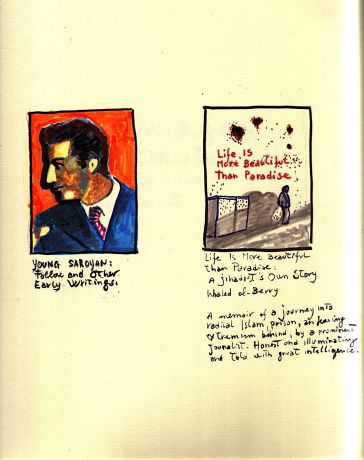 YOUNG SAROYAN:
Follow and Other
Early Writings:
Life Is
More Beautiful
Than Paradise
Life Is More Beautiful
than Paradise:
A Jihadist's Own Story
Khaled al-Berry
A memoir of a journey into
radical Islam, prison, and leaving
extremism behind, by a prominent
journalist. Honest and illuminating
and told with great intelligence.